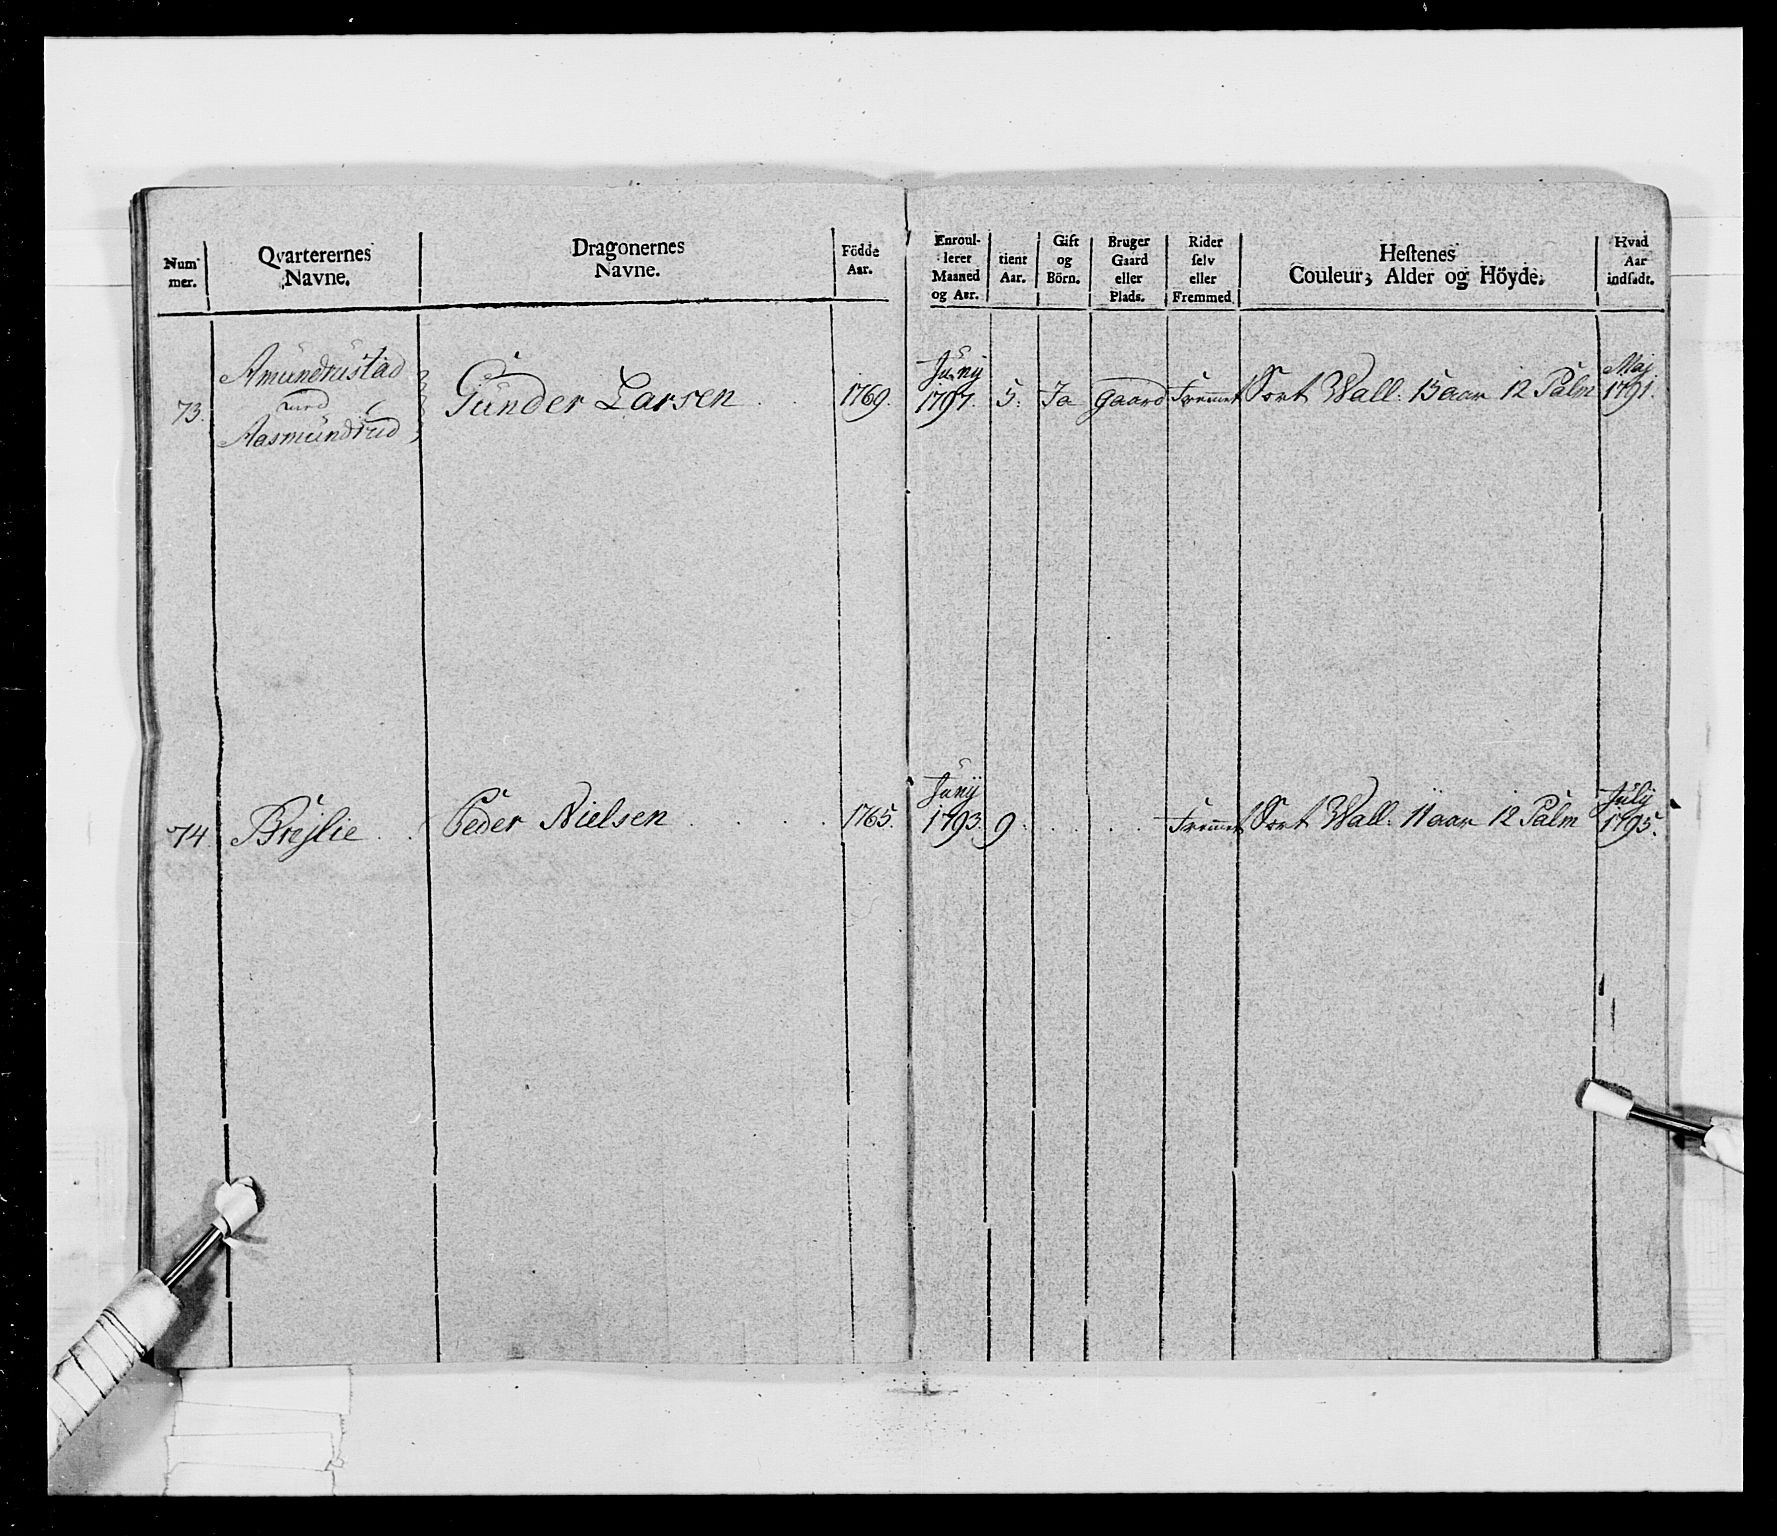 Num- mer. | Qvarterernes Navne. | Dragonernes Navne. | Födde Aar. | Enroul- leret Maaned og Aar. | tient Aar. | Gift og Börn. | Bruger Gaard eller Plads. | Rider selv eller Fremmed. | Hestenes Couleur, Alder og Höyde. | Hvad Aar indsadt.
73. | Amundrustad med Aasmundrud | Gunder Larsen | 1769. | Junij 1797. | 5. | Ja | gaard | Fremmet | Sort Wall. 15 aar 12 Palm | Maj 1791.
74 | Brejlie | Peder Nielsen | 1765. | Junij 1793. | 9. | Fremmet | Sort Wall. 11 aar 12 Palm | Julij 1795.